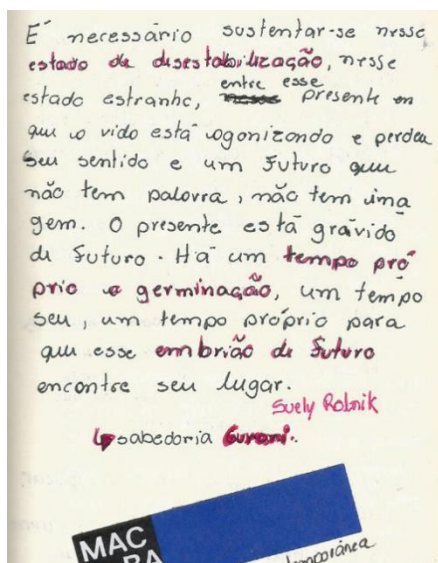 É necessário sustentar-se nesse
estado de desestabilização, nesse
estado estranho, entre esse presente em
que a vida está agonizando e perdeu
seu sentido e um futuro que
não tem palavra, não tem ima
gem. O presente está grávido
de futuro. Há um tempo pró
prio a germinação, um tempo
seu, um tempo próprio para
que esse embrião de futuro
encontre seu lugar.
Suely Rolnik
↳ sabedoria Gurani.
MAC
BA